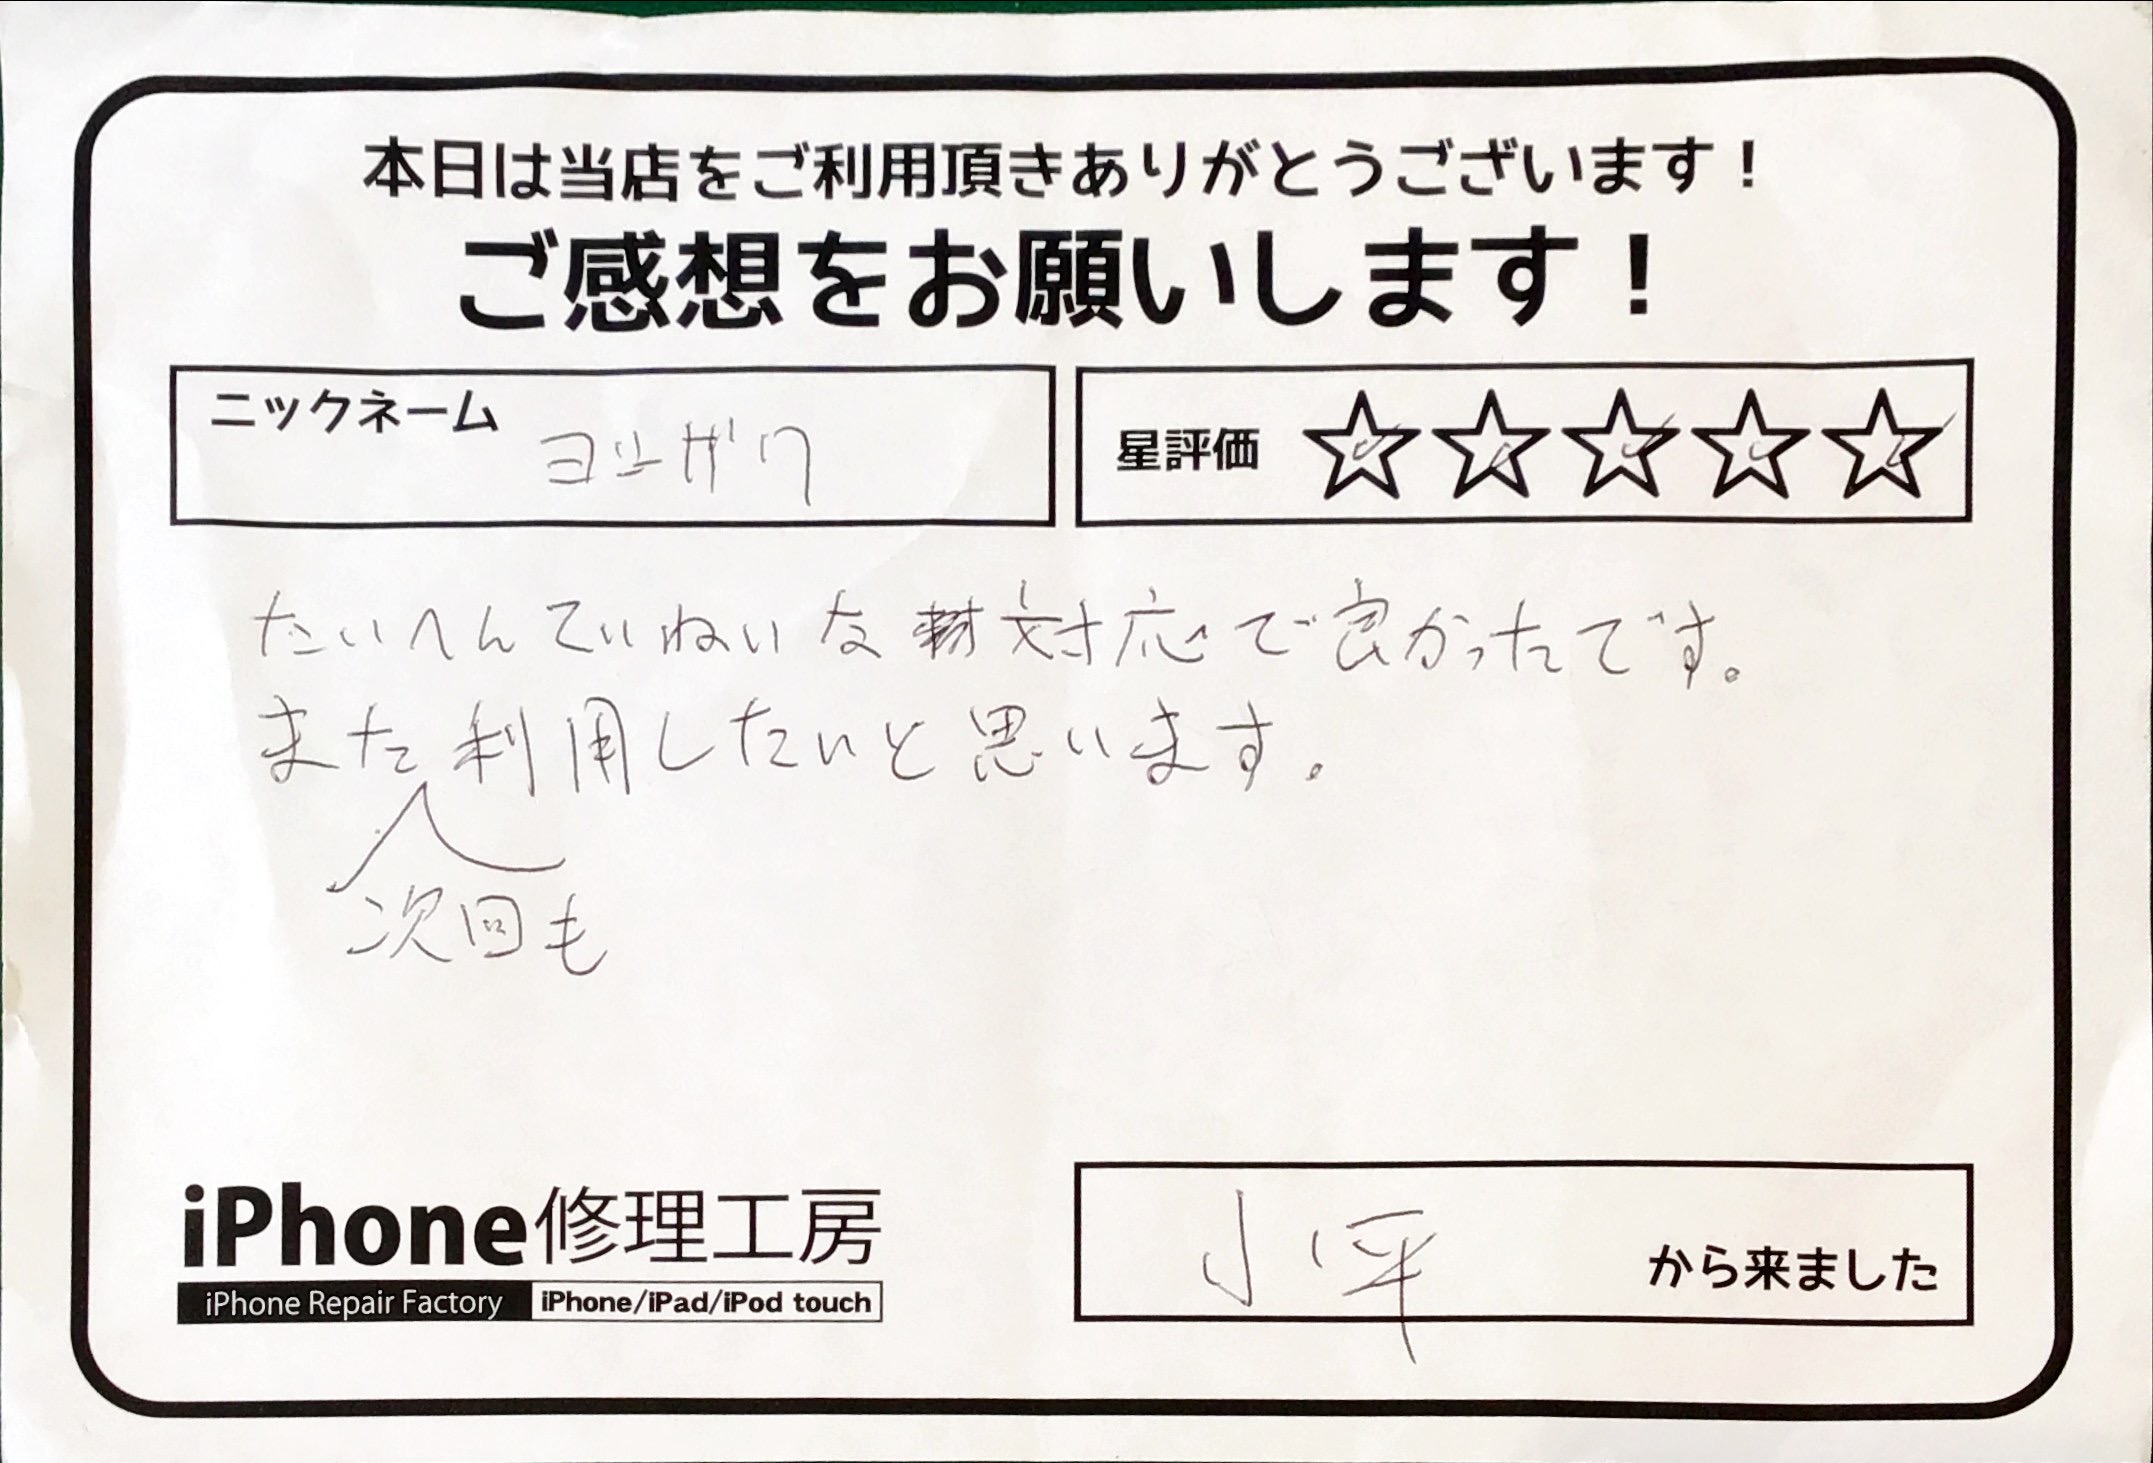 本日は当店をご利用頂きありがとうございます！
ご感想をお願いします！
ニックネーム
星評価 ☆☆☆☆☆
たいへんていねいな対応で良かったです。
また利用したいと思います。
次回も
iPhone修理工房
iPhone Repair Factory iPhone/iPad/iPod touch
小坪 から来ました